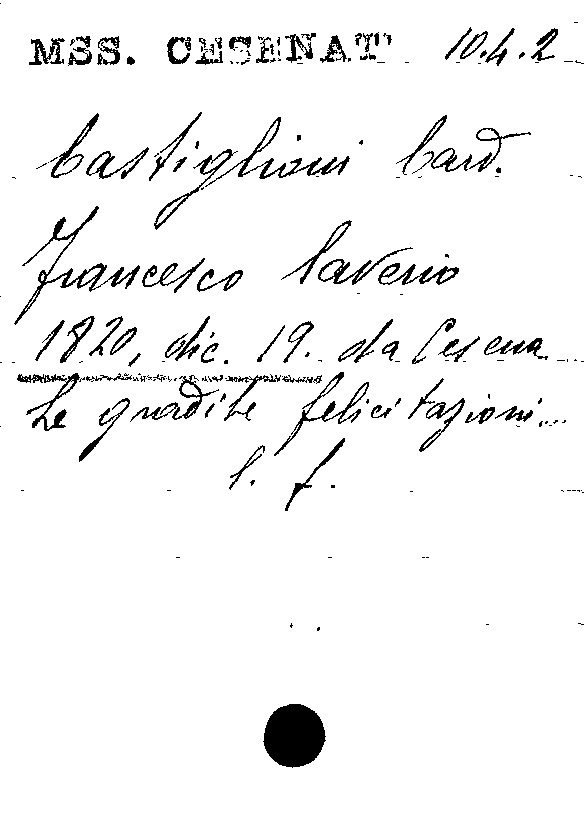 MSS. CESENAT 10.4.2
Castiglioni Card.
Francesco Saverio
1820, dic. 19. da Cesena
Le gradite felicitazioni...
l. f.